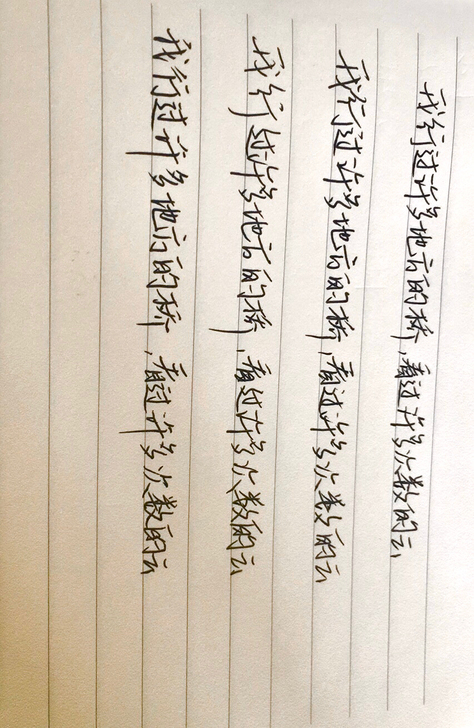 我行过许多地方的桥，看过许多次数的云
我行过许多地方的桥，看过许多次数的云
我行过许多地方的桥，看过许多次数的云
我行过许多地方的桥，看过许多次数的云